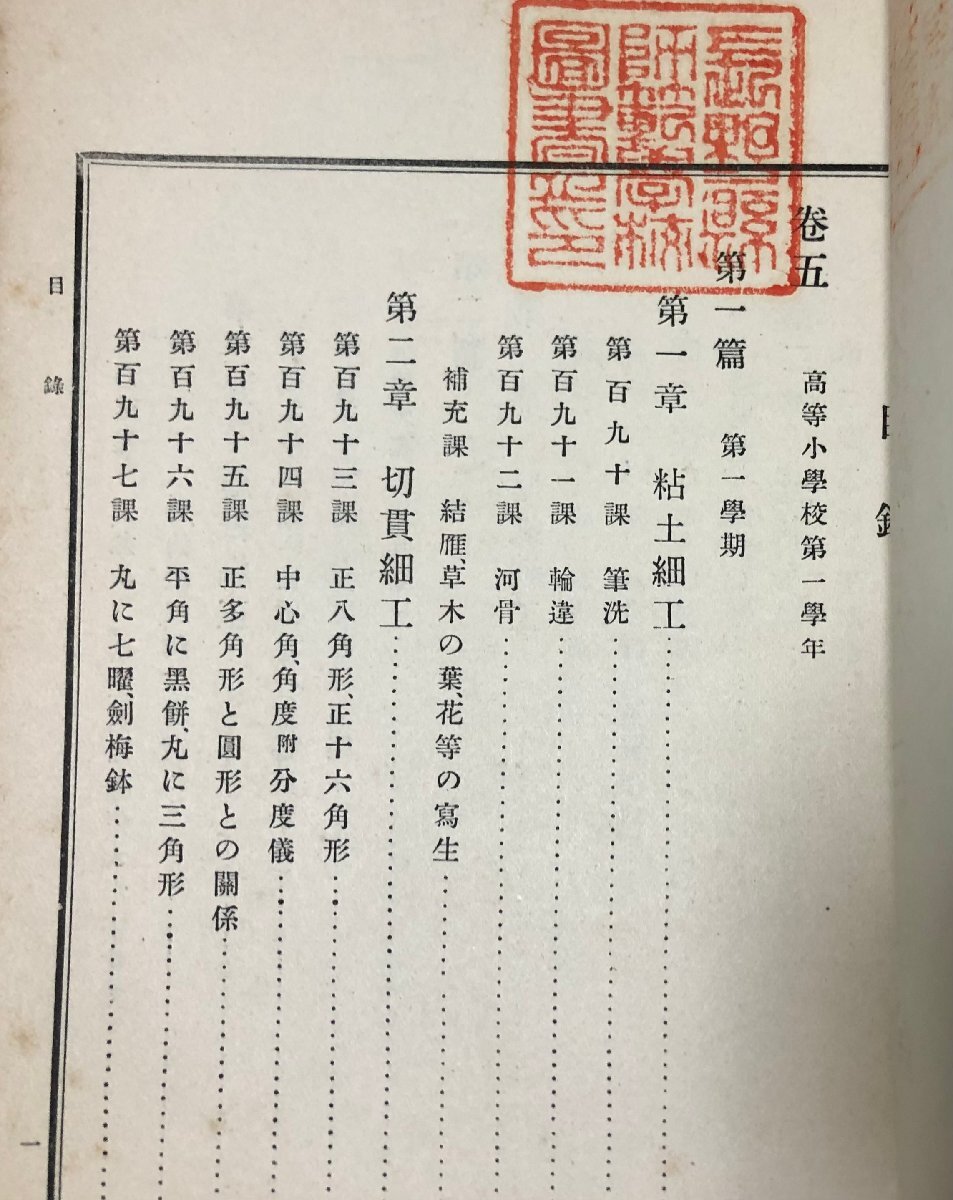 長野縣
師範學校
圖書印
目錄
卷五　高等小學校第一學年
第一篇　第一學期
第一章　粘土細工
第百九十課　筆洗
第百九十一課　輪違
第百九十二課　河骨
補充課　結雁、草木の葉、花等の寫生
第二章　切貫細工
第百九十三課　正八角形、正十六角形
第百九十四課　中心角、角度附分度儀
第百九十五課　正多角形と圓形との關係
第百九十六課　平角に黑餅、丸に三角形
第百九十七課　丸に七曜、劍梅鉢
目錄
一